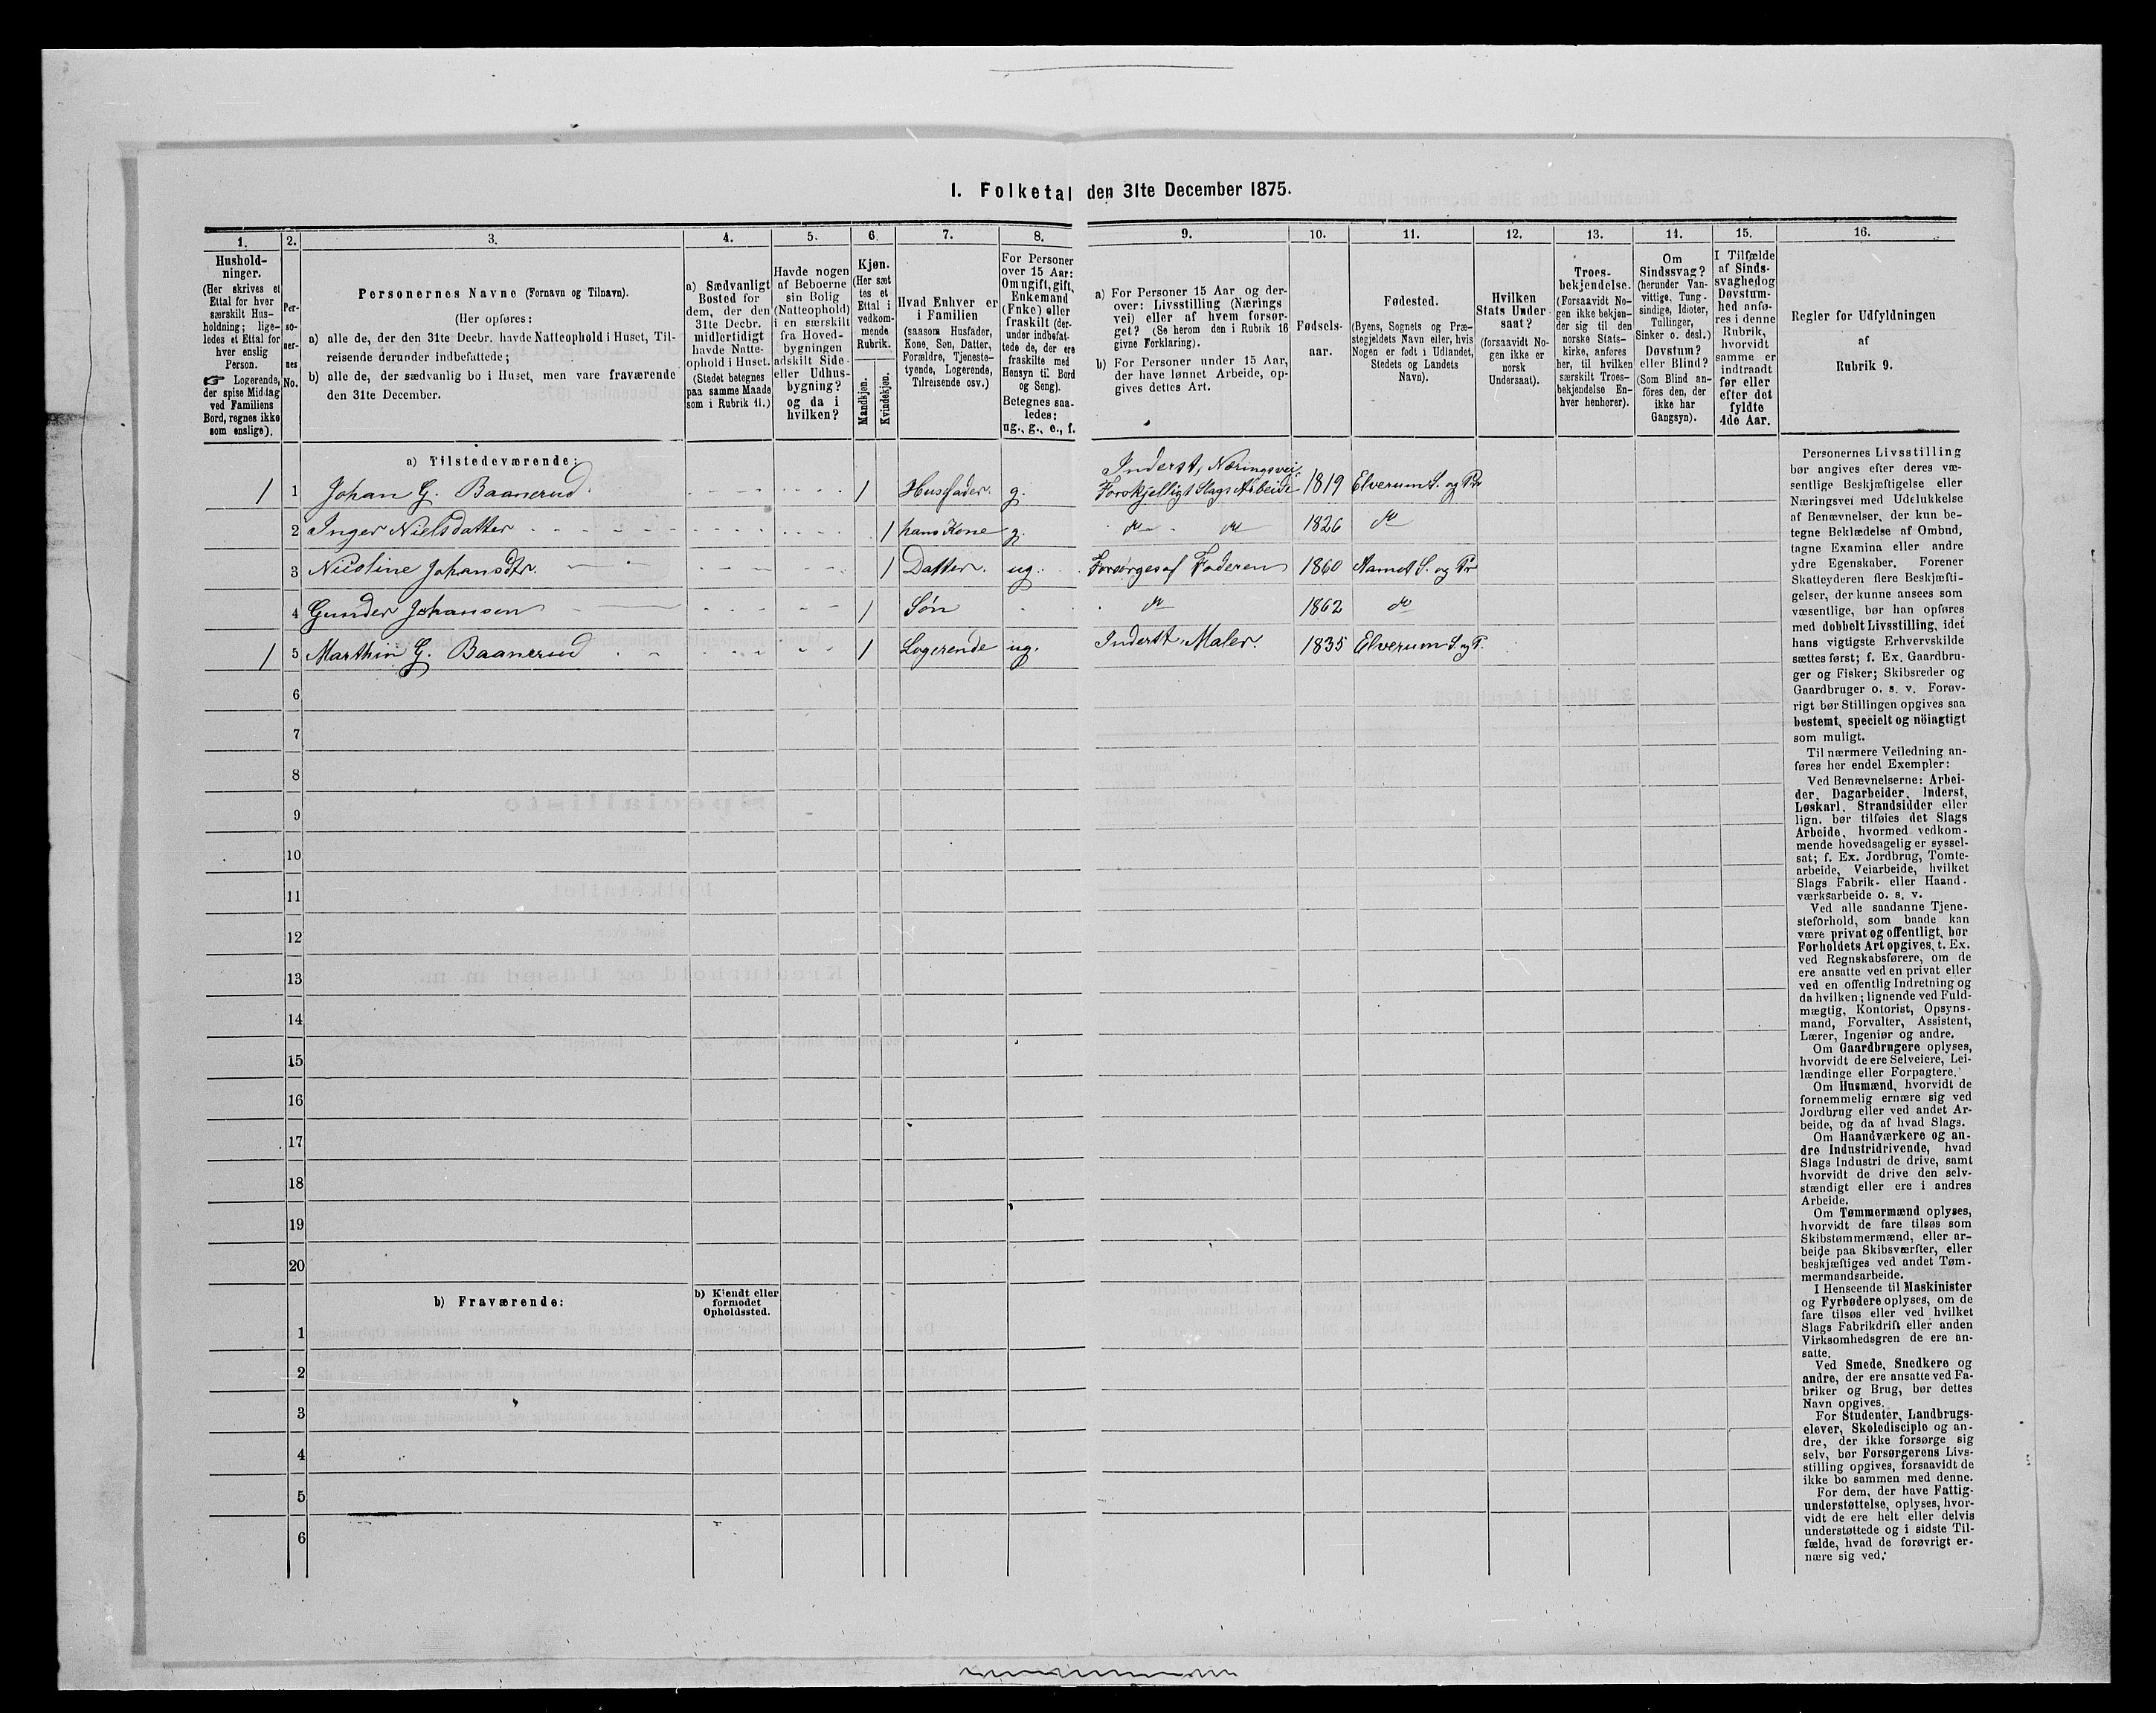 I. Folketal den 31te December 1875.
1.
Hushold-
ninger.
(Her skrives et
Ettal for hver
særskilt Hus-
holdning; lige-
ledes et Ettal for
hver enslig
Person.
☞ Logerende,
der spise Middag
ved Familiens
Bord, regnes ikke
som enslige).
2.
Per-
so-
ner-
nes
No.
3.
Personernes Navne (Fornavn og Tilnavn).
(Her opføres:
a) alle de, der den 31te Decbr. havde Natteophold i Huset, Til-
reisende derunder indbefattede;
b) alle de, der sædvanlig bo i Huset, men vare fraværende
den 31te December.
4.
a) Sædvanligt
Bosted for
dem, der den
31te Decbr.
midlertidigt
havde Natte-
ophold i Huset.
(Stedet betegnes
paa samme Maade
som i Rubrik 11.)
5.
Havde nogen
af Beboerne
sin Bolig
(Natteophold)
i en særskilt
fra Hoved-
bygningen
adskilt Side-
eller Udhus-
bygning?
og da i
hvilken?
6.
Kjøn.
(Her sæt
tes et
Ettal i
vedkom-
mende
Rubrik.
Mandkjøn.
Kvindekjøn.
7.
Hvad Enhver er
i Familien
(saasom Husfader,
Kone, Søn, Datter,
Forældre, Tjeneste-
tyende, Logerende,
Tilreisende osv.)
8.
For Personer
over 15 Aar:
Om ugift, gift,
Enkemand
(Enke) eller
fraskilt (der-
under indbefat-
tede de, der ere
fraskilte med
Hensyn til Bord
og Seng).
Betegnes saa-
ledes:
ug., g., e., f.
9.
a) For Personer 15 Aar og der-
over: Livsstilling (Nærings
vei) eller af hvem forsør-
get? (Se herom den i Rubrik 16
givne Forklaring).
b) For Personer under 15 Aar,
der have lønnet Arbeide, op-
gives dettes Art.
10.
Fødsels-
aar.
11.
Fødested.
(Byens, Sognets og Præ-
stegjeldets Navn eller, hvis
Nogen er født i Udlandet,
Stedets og Landets
Navn).
12.
Hvilken
Stats Under
saat?
(forsaavidt No-
gen ikke er
norsk
Undersaat).
13.
Troes-
bekjendelse.
(Forsaavidt No-
gen ikke bekjen-
der sig til den
norske Stats-
kirke, anføres
her, til hvilken
særskilt Troes-
bekjendelse En-
hver henhører).
14.
Om
Sindssvag?
(herunder Van-
vittige, Tung-
sindige, Idioter,
Tullinger,
Sinker o. desl.)
Døvstum?
eller Blind?
(Som Blind an-
føres den, der
ikke har
Gangsyn).
15.
I Tilfælde
af Sinds-
svaghed og
Døvstum-
hed anfø-
res i denne
Rubrik,
hvorvidt
samme er
indtraadt
før eller
efter det
fyldte
4de Aar.
16.
Regler for Udfyldningen
af
Rubrik 9.
a) Tilstedeværende:
1 1 Johan G. Baanerud 1 Husfader g. Inderst, Næringsvei Forskjelligt Slags Arbeide 1819 Elverum S. og Pr
2 Inger Nielsdatter 1 hans Kone g. do do 1826 do
3 Nicoline Johansdtr. 1 Datter ug. Forsørges af Faderen 1860 Aamot S. og Pr
4 Gunder Johansen 1 Søn do 1862 do
1 5 Marthin G. Baanerud 1 Logerende ug. Inderst Maler. 1835 Elverum S. og P.
6
7
8
9
10
11
12
13
14
15
16
17
18
19
20
b) Fraværende:
b) Kjendt eller
formodet
Opholdssted.
1
2
3
4
5
6
Personernes Livsstilling
bør angives efter deres væ-
sentlige Beskjæftigelse eller
Næringsvei med Udelukkelse
af Benævnelser, der kun be-
tegne Beklædelse af Ombud,
tagne Examina eller andre
ydre Egenskaber. Forener
Skatteyderen flere Beskjæfti-
gelser, der kunne ansees som
væsentlige, bør han opføres
med dobbelt Livsstilling, idet
hans vigtigste Erhvervskilde
sættes først; f. Ex. Gaardbru-
ger og Fisker; Skibsreder og
Gaardbruger o. s. v. Forøv-
rigt bør Stillingen opgives saa
bestemt, specielt og nöiagtigt
som muligt.
Til nærmere Veiledning an-
føres her endel Exempler:
Ved Benævnelserne: Arbei-
der, Dagarbeider, Inderst,
Løskarl, Strandsidder eller
lign. bør tilføies det Slags
Arbeide, hvormed vedkom-
mende hovedsagelig er syssel-
sat; f. Ex. Jordbrug, Tomte-
arbeide, Veiarbeide, hvilket
Slags Fabrik- eller Haand-
værksarbeide o. s. v.
Ved alle saadanne Tjene-
steforhold, som baade kan
være privat og offentligt, bør
Forholdets Art opgives, t. Ex.
ved Regnskabsførere, om de
ere ansatte ved en privat eller
ved en offentlig Indretning og
da hvilken; lignende ved Fuld-
mægtig, Kontorist, Opsyns-
mand, Forvalter, Assistent,
Lærer, Ingeniør og andre.
Om Gaardbrugere oplyses,
hvorvidt de ere Selveiere, Lei-
lændinge eller Forpagtere.
Om Husmænd, hvorvidt de
fornemmelig ernære sig ved
Jordbrug eller ved andet Ar-
beide, og da af hvad Slags.
Om Haandværkere og an-
dre Industridrivende, hvad
Slags Industri de drive, samt
hvorvidt de drive den selv-
stændigt eller ere i andres
Arbeide.
Om Tømmermænd oplyses,
hvorvidt de fare tilsøs som
Skibstømmermænd, eller ar-
beide paa Skibsværfter, eller
beskjæftiges ved andet Tøm-
mermandsarbeide.
I Henseende til Maskinister
og Fyrbødere oplyses, om de
fare tilsøs eller ved hvilket
Slags Fabrikdrift eller anden
Virksomhedsgren de ere an-
satte.
Ved Smede, Snedkere og
andre, der ere ansatte ved Fa-
briker og Brug, bør dettes
Navn opgives.
For Studenter, Landbrugs-
elever, Skoledisciple og an-
dre, der ikke forsørge sig
selv, bør Forsørgerens Livs-
stilling opgives, forsaavidt de
ikke bo sammen med denne.
For dem, der have Fattig-
understøttelse, oplyses, hvor-
vidt de ere helt eller delvis
understøttede og i sidste Til-
fælde, hvad de forøvrigt er-
nære sig ved.